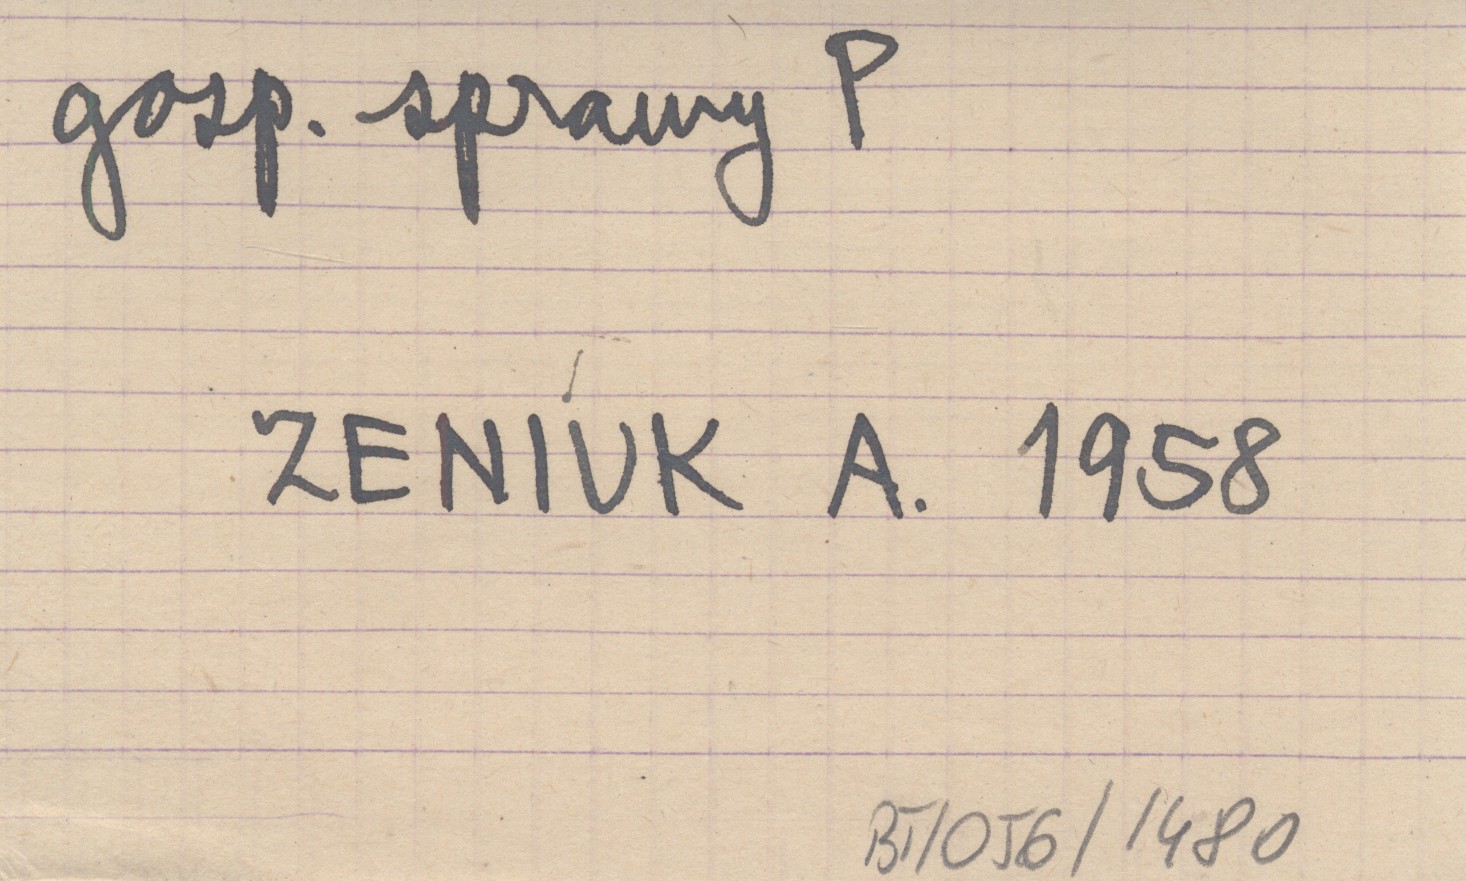 gosp. sprawy P
ZENIUK A. 1958
BT/OJG/1480